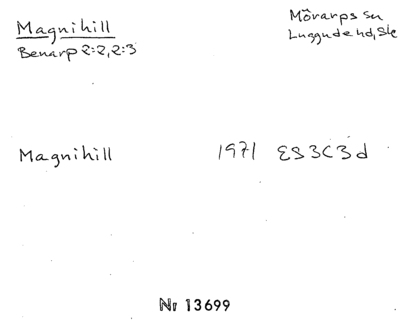 Magnihill
Benarp 2:2, 2:3
Mörarps sn
Luggude hd, Sk
Magnihill 1971 ES3C3d
Nr 13699